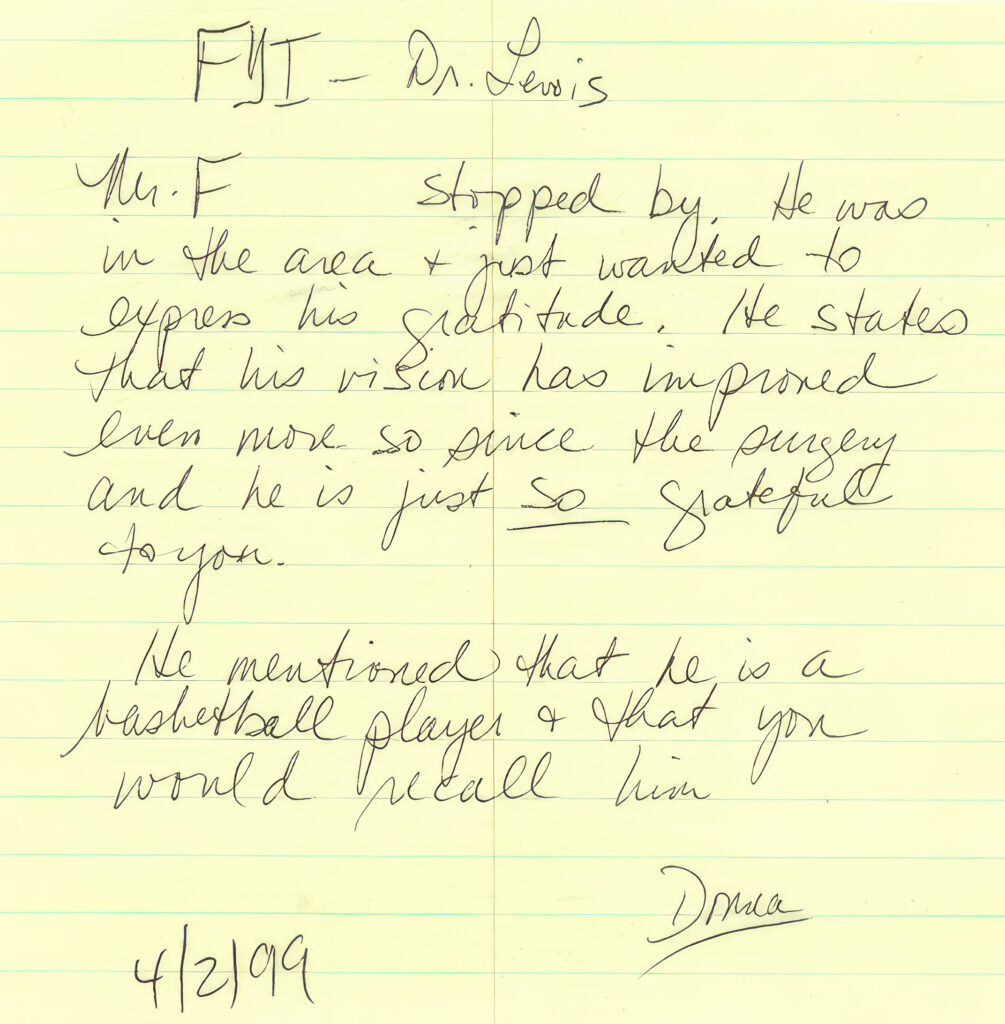 FYI - Dr. Lewis
Mr. F stopped by. He was
in the area + just wanted to
express his gratitude. He states
that his vision has improved
even more so since the surgery
and he is just so grateful
to you.
He mentioned that he is a
basketball player + that you
would recall him
Donna
4/2/99